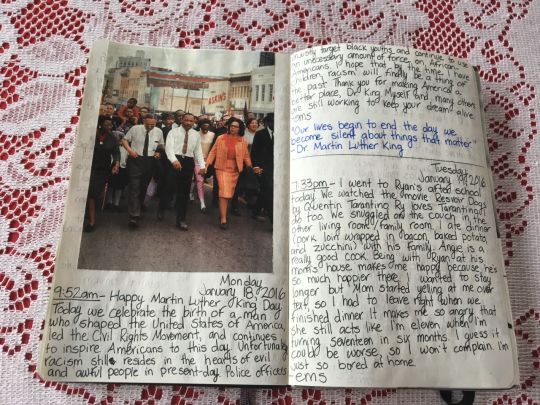 Monday
January 18, 2016
9:52am - Happy Martin Luther King Day
Today we celebrate the birth of a man
who shaped the United States of America,
led the Civil Rights Movement, and continues
to inspire Americans to this day. Unfortunately
racism still resides in the hearts of evil
and awful people in present-day. Police officers
target black youths and continue to use
an unnecessary amount of force on African
Americans. I hope that by the time I have
children, racism will finally be a thing of
the past. Thank you for making America a
better place, Dr. King. Myself and many others
still working to keep your dream alive
-ems
"Our lives begin to end the day we
become silent about things that matter"
- Dr. Martin Luther King
Tuesday
January 19, 2016
7:33pm - I went to Ryan's after school
today. We watched the movie Resevoir Dogs
by Quentin Tarantino. Ry loves Tarantino. I
do too. We snuggled on the couch in the
other living room/family room, ate dinner
(pork loin wrapped in bacon, baked potato,
and zucchini) with his family. Angie is a
really good cook. Being with Ryan at his
mom's house makes me happy because he's
so much happier there. I wanted to stay
longer but Mom started yelling at me over
text, so I had to leave right when we
finished dinner. It makes me so angry that
she still acts like I'm eleven when I'm
turning seventeen in six months. I guess it
could be worse, so I won't complain. I'm
just so bored at home.
-ems